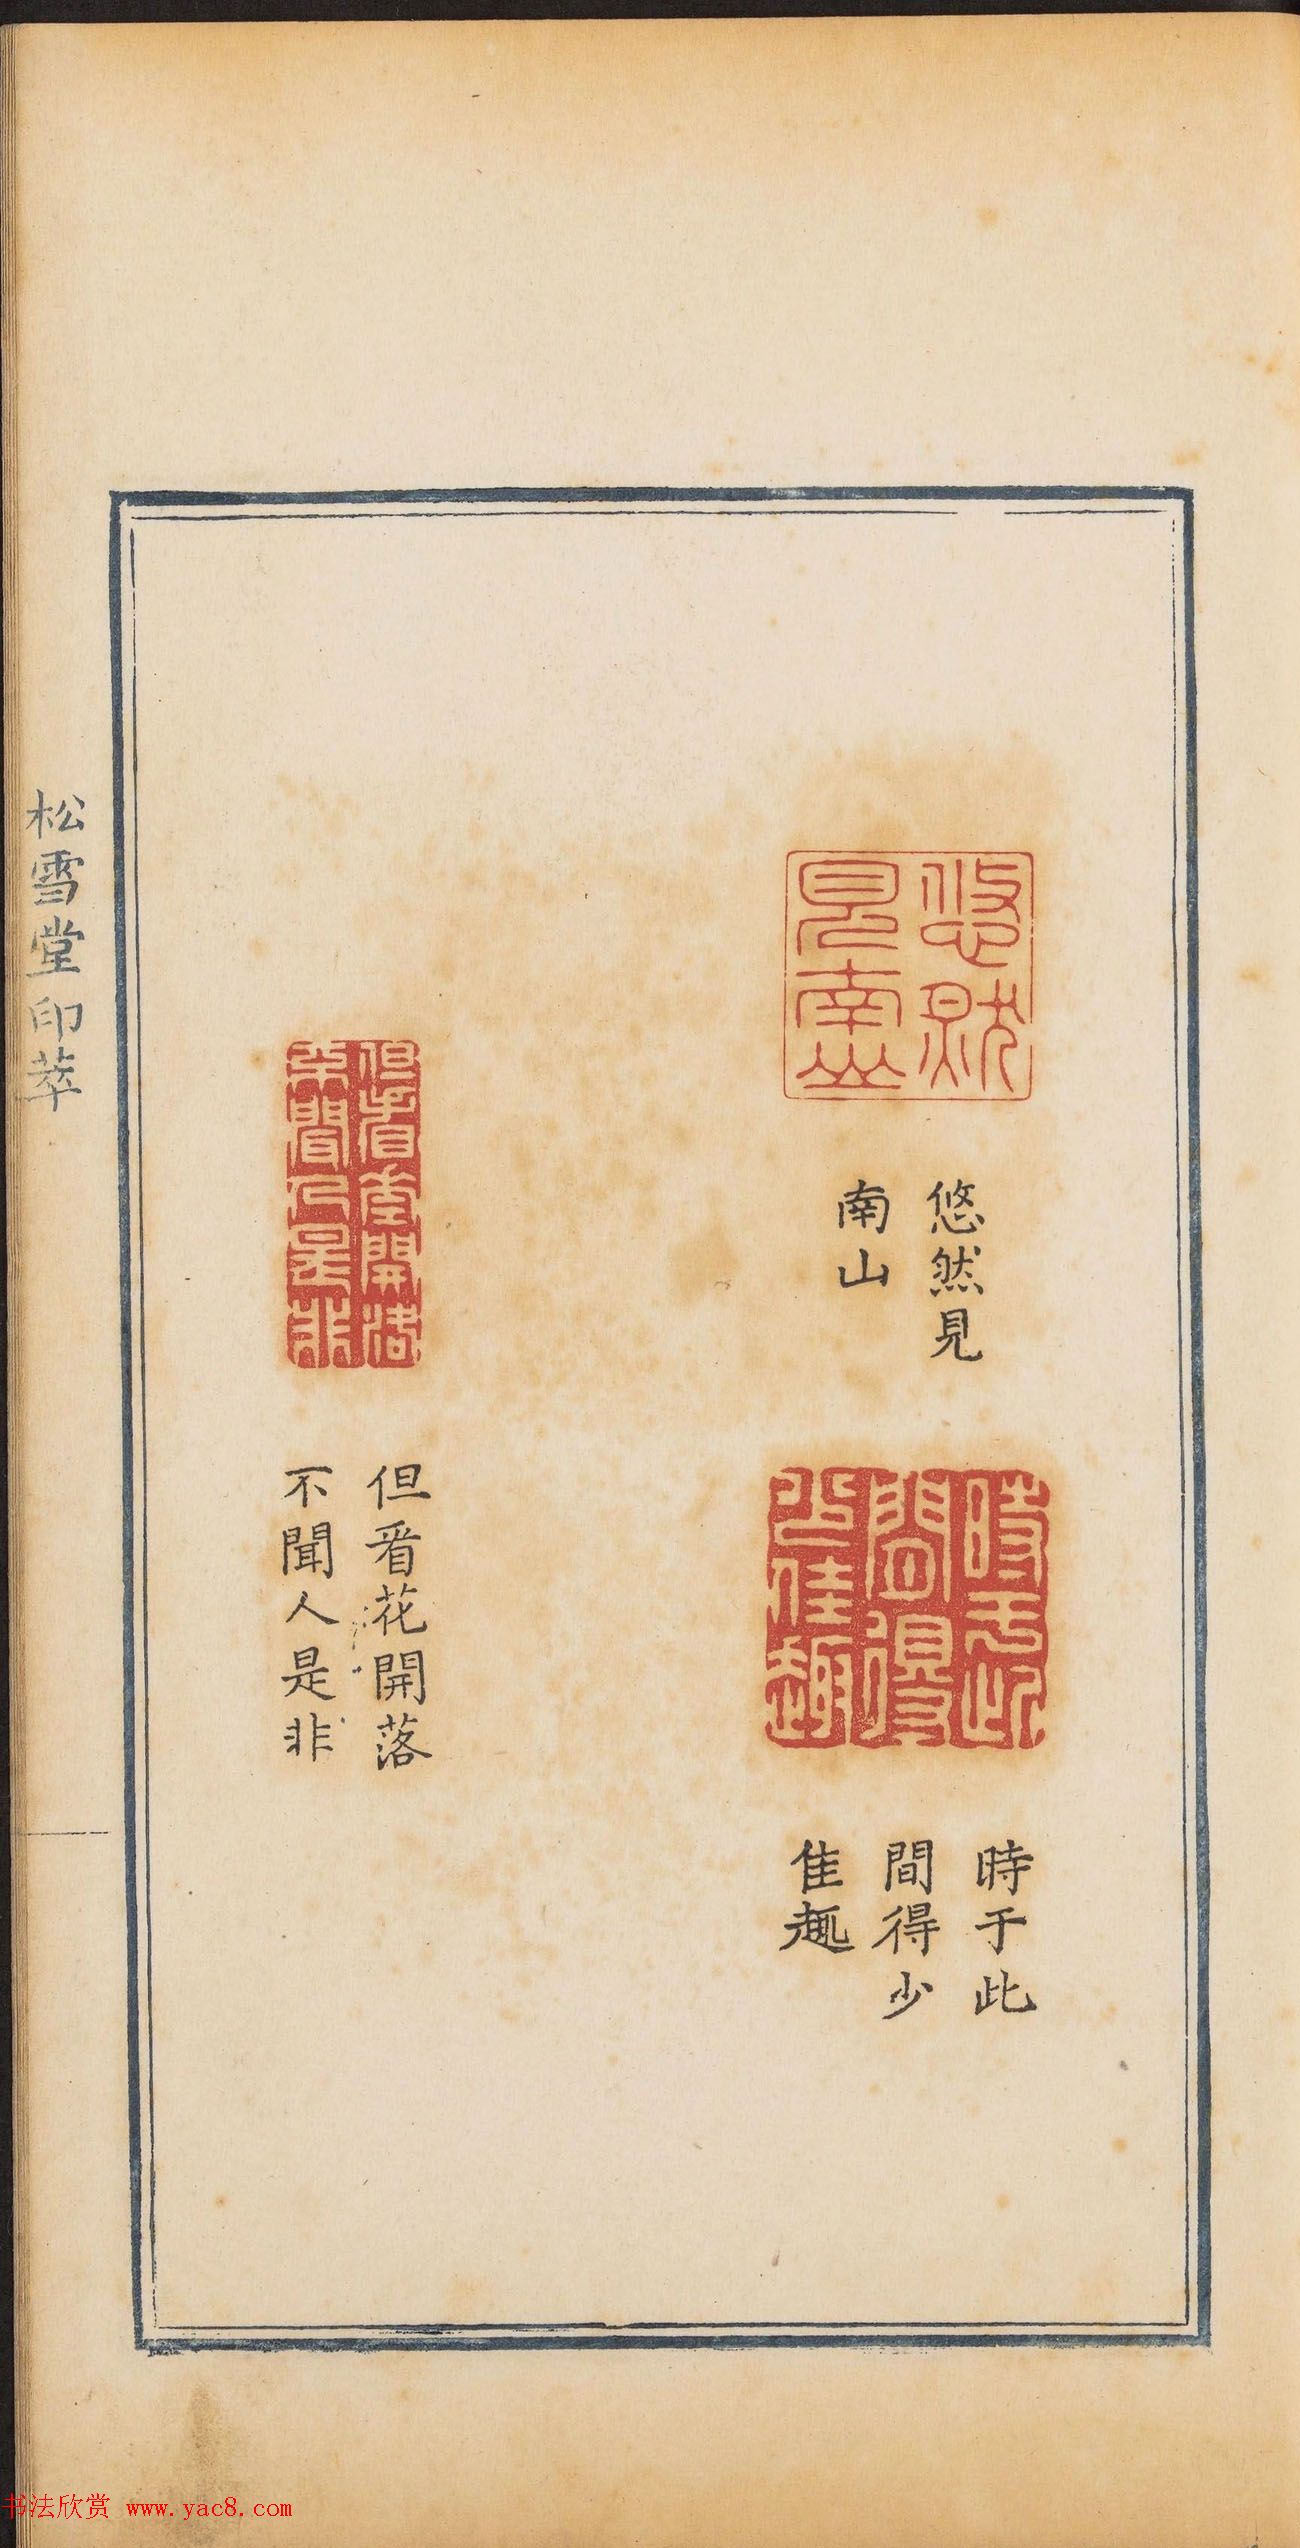 悠然見南山
悠然見
南山
時于此間得少佳趣
時于此
間得少
佳趣
但看花開落不聞人是非
但看花開落
不聞人是非
松雪堂印萃
书法欣赏 www.yac8.com